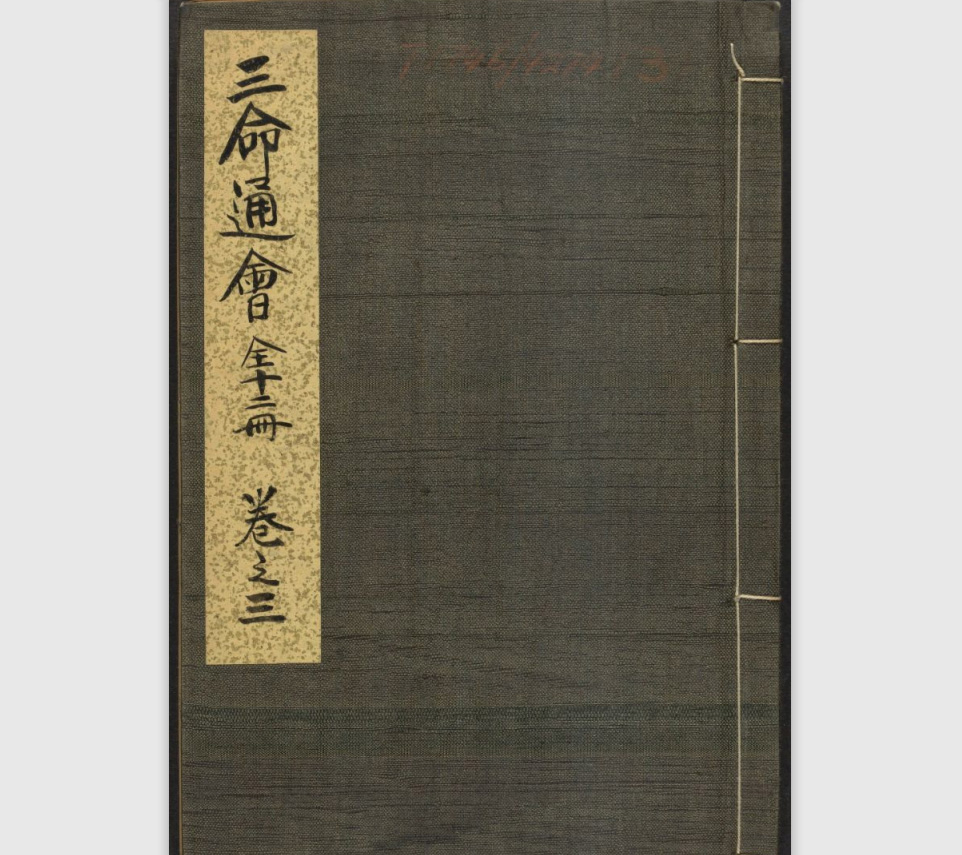 三命通會 全十二冊 卷之三